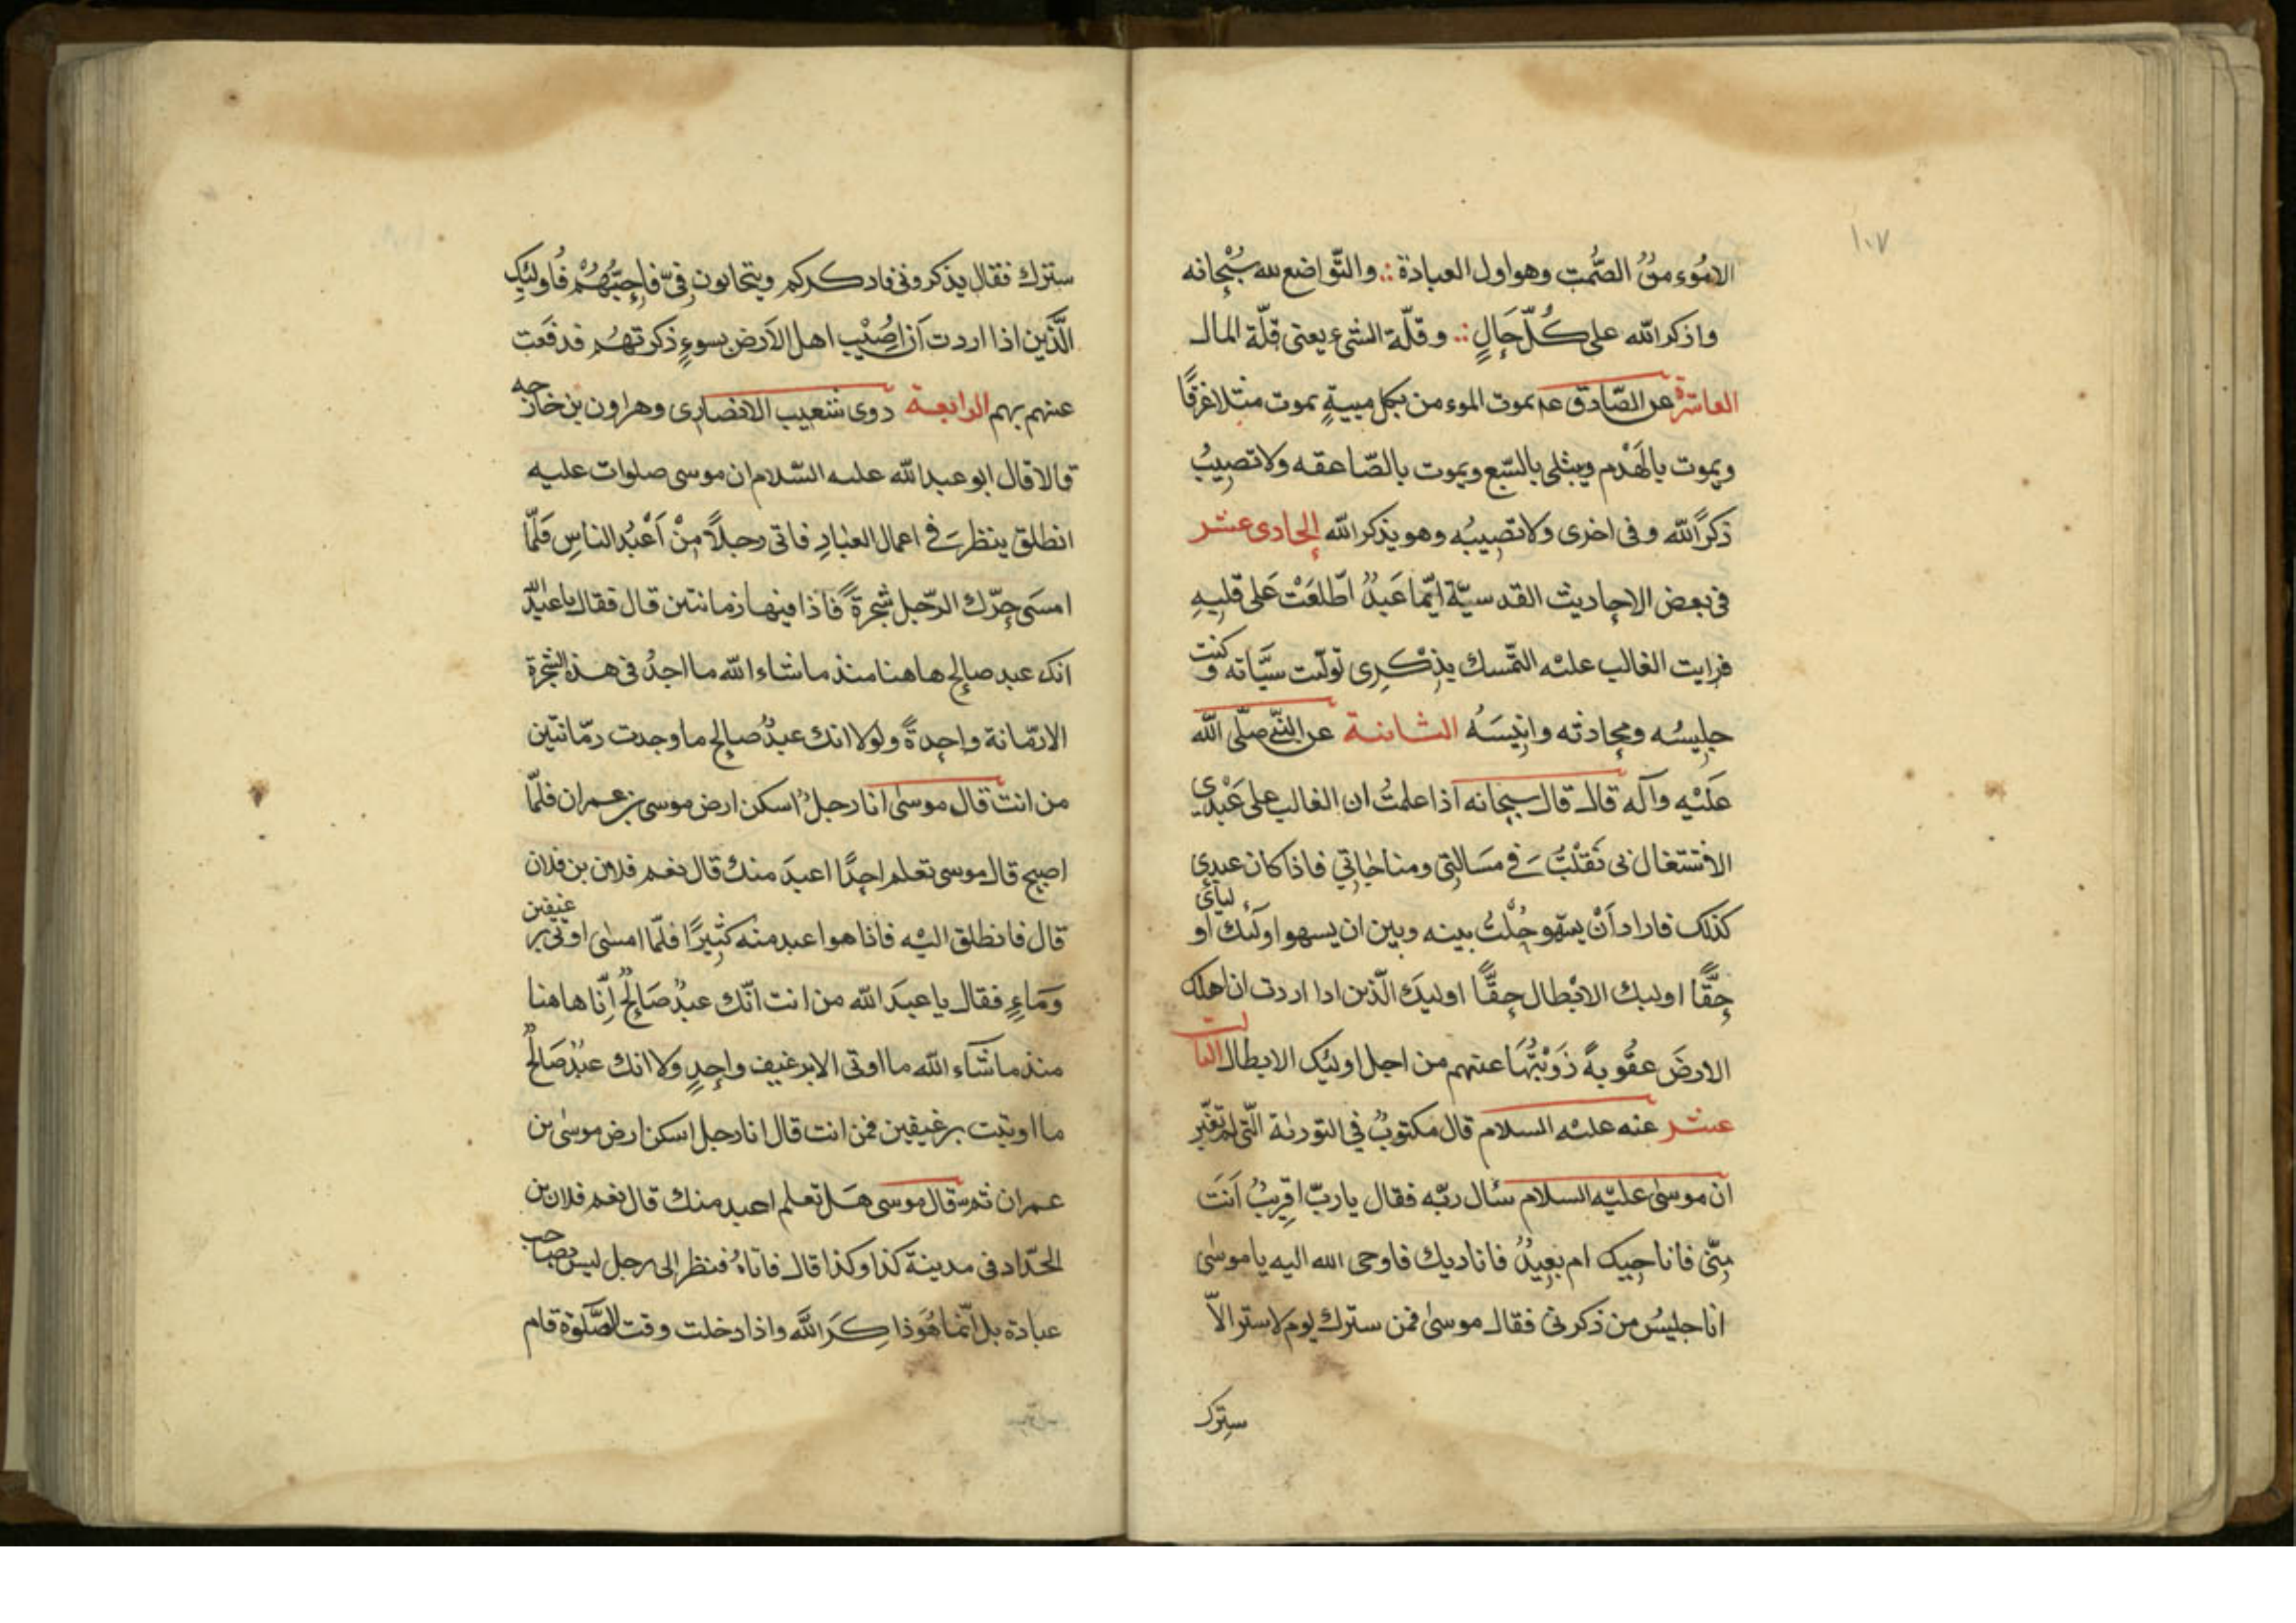 ١٠٧
الامُوء منٌ الصُّمت وهو اول العبادة ؞ والتّواضع لله سُبْحانه
واذكر الله على كُلّ حَالٍ ؞ وقلّة الشىء يعنى قلّة المال
العاشرة عن الصّادق عم يموت الموءمن بكل ميتةٍ يموت مثلا غرقًا
ويموت بالهَدْم ويبتلى بالسّبع ويموت بالصّاعقه ولا تصيبُ
ذكرًالله وفى اخرى ولا تصيبُه وهو يذكر الله الحادى عشر
فى بعض الاحاديث القدسيّة ايّما عَبدٌ اطّلعَتْ عَلى قلبِهِ
فرايت الغالب عليْه التمّسك بِذِكْرِى تولّيت سيَّاته وكنت
جليسُه ومحادثه وانيسَهُ الثانية عن النّبّى صلّى الله
عَلَيْه وآله قال قال سبحانه اذا علمتُ ان الغالب على عَبْدِى
الاشتغال بى نَقَلْتُ فى مسَالتِى ومناجاتِي فاذا كان عبدِى
كذلك فاراد اَنْ يسهو حُلْتُ بينه وبين ان يسهو اولئك اوليائى
حقًّا اوليك الابْطال حقًّا اوليكَ الّذين اذا اردت ان اهلك
الارضَ عقُوبةً زَوَيْتُهَا عنهم من اجل اوليك الابطال الثالث
عشر عنه عليه السلام قال مكتوبٌ فى التورية الّتى لم تغيّر
ان موسى عليْه السلام سئال ربّه فقال يا ربّ اقريبٌ اَنتَ
مِنّى فاناجيك ام بعيدٌ فاناديك فاوحى الله اليه يا موسى
انا جليسُ من ذكرنى فقال موسى فمن سترك يوم لا ستر الاّ
سترك
سترك فقال يذكرونى فاذكركم ويتحابون فىّ فاحِبّهُمْ فاُولئك
الَّذين اذا اردت اَن اصُيْب اهل الاَرض بسوءٍ ذكرتهُم فدفعت
عنهم بهم الرابعة روى شعيب الانصارى وهرون بن خارجه
قالا قال ابو عبدالله عليه السّلام ان موسى صلوات عليه
انطلق ينظر فى اعمال العبادِ فاتى رجلاً مِنْ اَعْبُد الناسِ فَلمّا
امسَى حرّك الرّجل شجرةً فاذا فيها رمانتين قال فقال يا عبدالله
انك عبد صالح هاهنا منذ ما شاء الله ما اجدُ فى هذه الشجرة
الا رمّانة واحدةً ولولا انك عبدٌ صالح ما وجدت رمّانتين
من انت قال موسى انا رجلٌ اسكن ارض موسى بن عمران فلمّا
اصبح قال موسى تعلم احدًا اعبدَ منك قال نعم فلان بن فلان
قال فانطلق اليْه فاذا هو اعبد منه كثيرًا فلمّا امسى اوتى برغيفين
وَمَاءٍ فقال يا عبدَ الله من انت انّك عبدٌ صَالحٌ اِنّا هاهنا
منذ ما شآء الله ما اوتى الا برغيف واحدٍ ولا انك عبْدٌ صَالحٌ
ما اوتيت برغيفين فمن انت قال انا رجل اسكن ارض موسى بن
عمران ثم قال موسى هَل تعلم احد اعبد منك قال نعم فلان بن
الحدّاد فى مدينة كذا وكذا قال فاتاهُ فنظر الى رجل ليس بصاحب
عبادة بل انّما هُوَ ذاكِرَ الله واذا دخلت وقت الصّلوٰة قام